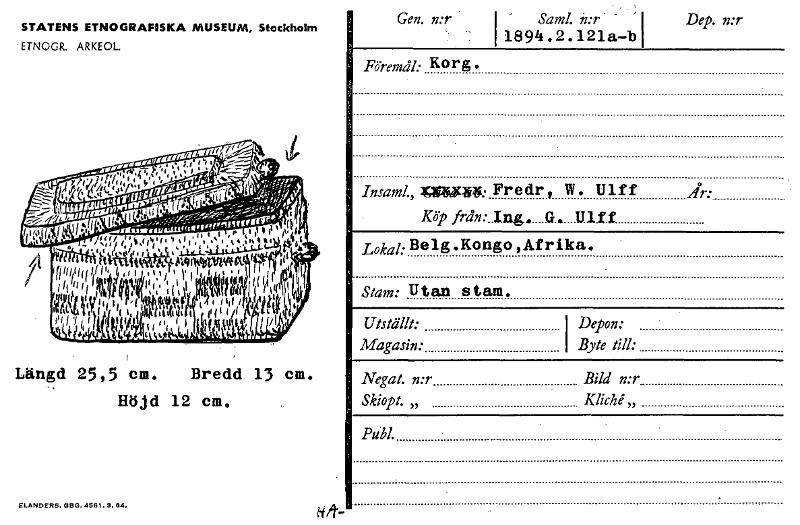 STATENS ETNOGRAFISKA MUSEUM, Stockholm
ETNOGR. ARKEOL.
Längd 25,5 cm. Bredd 13 cm.
Höjd 12 cm.
ELANDERS. GBG. 4561. 3. 64.
HA-
Gen. n:r Saml. n:r Dep. n:r
1894.2.121a-b
Föremål: Korg.
Insaml., : Fredr, W. Ulff År:
Köp från: Ing. G. Ulff
Lokal: Belg.Kongo,Afrika.
Stam: Utan stam.
Utställt: Depon:
Magasin: Byte till:
Negat. n:r Bild n:r
Skiopt. „ Kliché „
Publ.